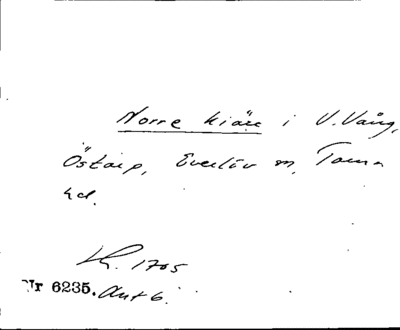 Norre kiärr i V. Vång,
Östarp, Everlöv sn, Torna
hd.
Kh. 1705
Nr 6235. Akt 6.